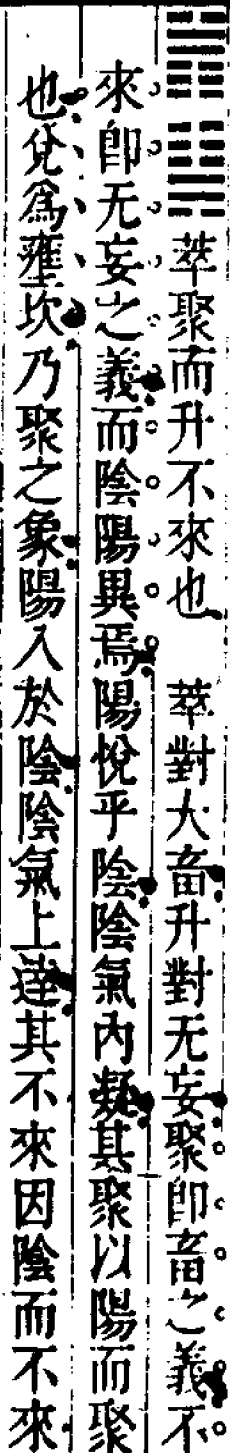 萃聚而升不來也　萃對大畜升對无妄聚即畜之義不
來即无妄之義而陰陽異焉陽悅乎陰陰氣內凝其聚以陽而聚
也兌爲壅坎乃聚之象陽入於陰陰氣上達其不來因陰而不來